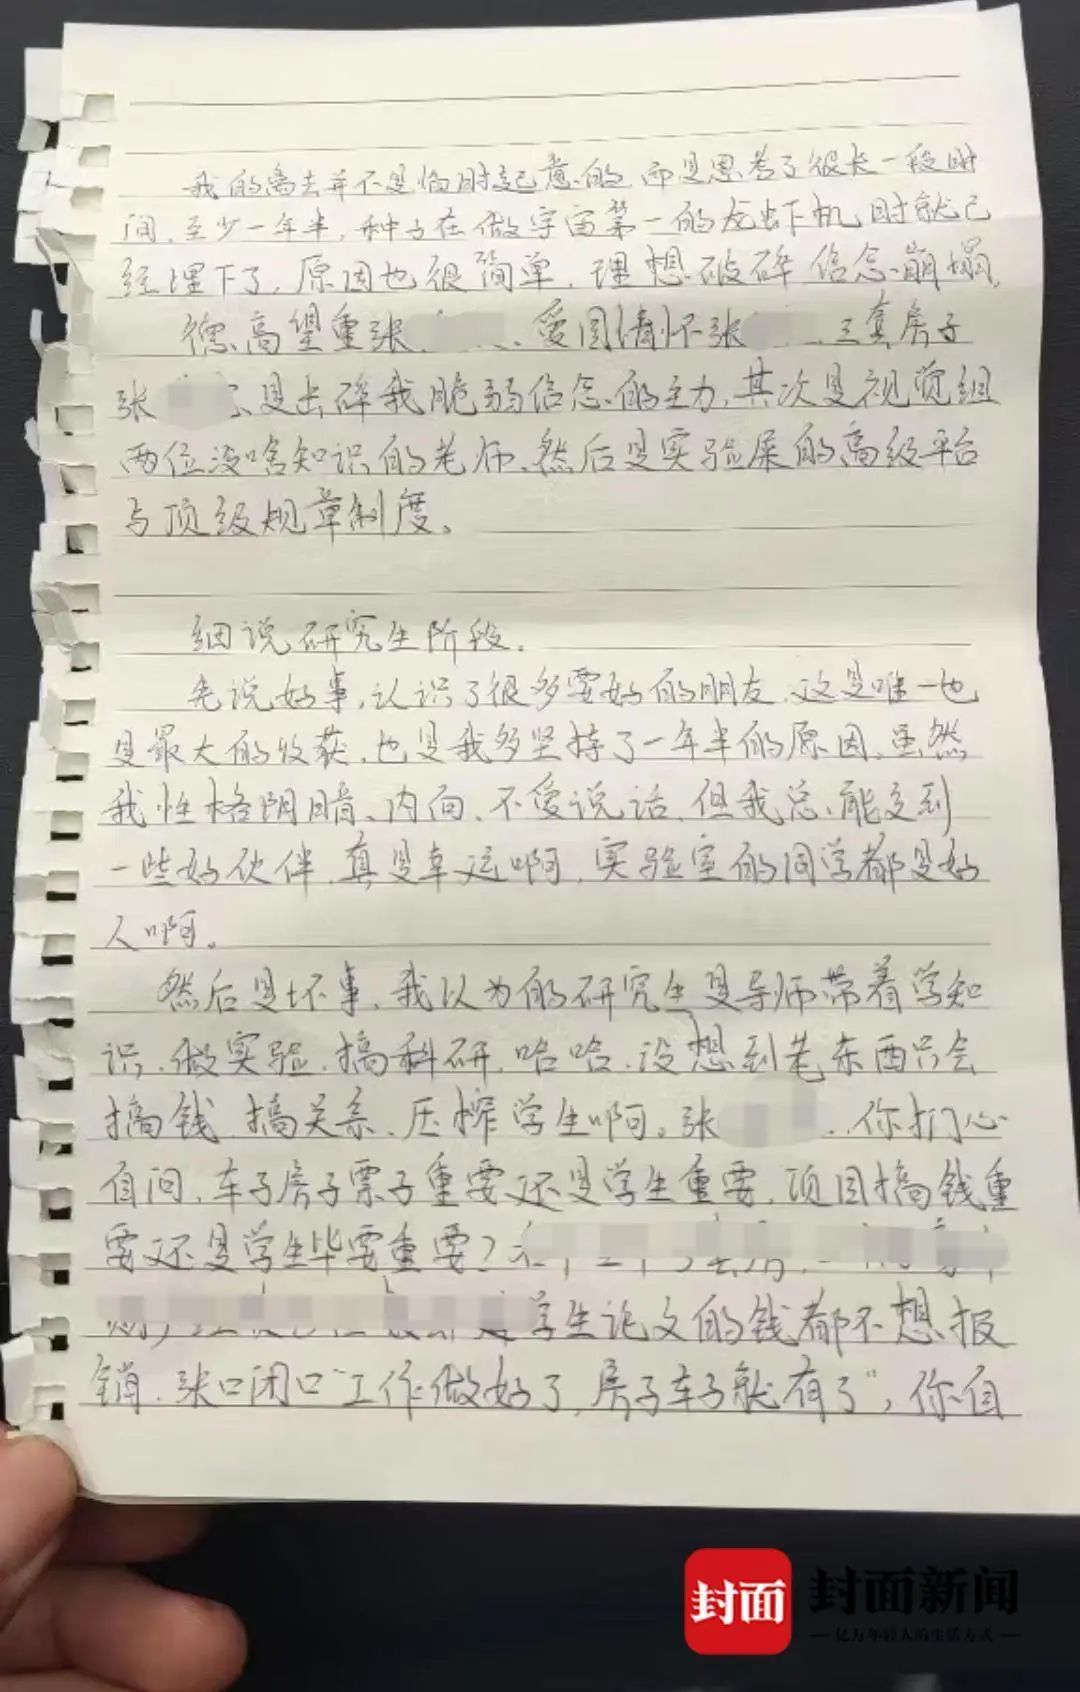 我的离去并不是临时起意的,而是思考了很长一段时
间,至少一年半,种子在做宇宙第一的龙虾机时就已
经埋下了,原因也很简单,理想破碎 信念崩塌。
德高望重张 爱国情怀张 三套房子
张 是击碎我脆弱信念的主力,其次是视觉组
两位没啥知识的老师,然后是实验屎的高级平台
与顶级规章制度。
细说研究生阶段。
先说好事,认识了很多要好的朋友,这是唯一也
是最大的收获,也是我多坚持了一年半的原因,虽然
我性格阴暗、内向、不爱说话,但我总能交到
一些好伙伴,真是幸运啊,实验室的同学都是好
人啊。
然后是坏事,我以为的研究生是导师带着学知
识、做实验、搞科研,哈哈,没想到老东西只会
搞钱、搞关系、压榨学生啊。张 你扪心
自问,车子房子票子重要还是学生重要,项目搞钱重
要还是学生毕要重要?
学生论文的钱都不想报
销,张口闭口“工作做好了,房子车子就有了”,你自
封面
封面新闻
亿万年轻人的生活方式